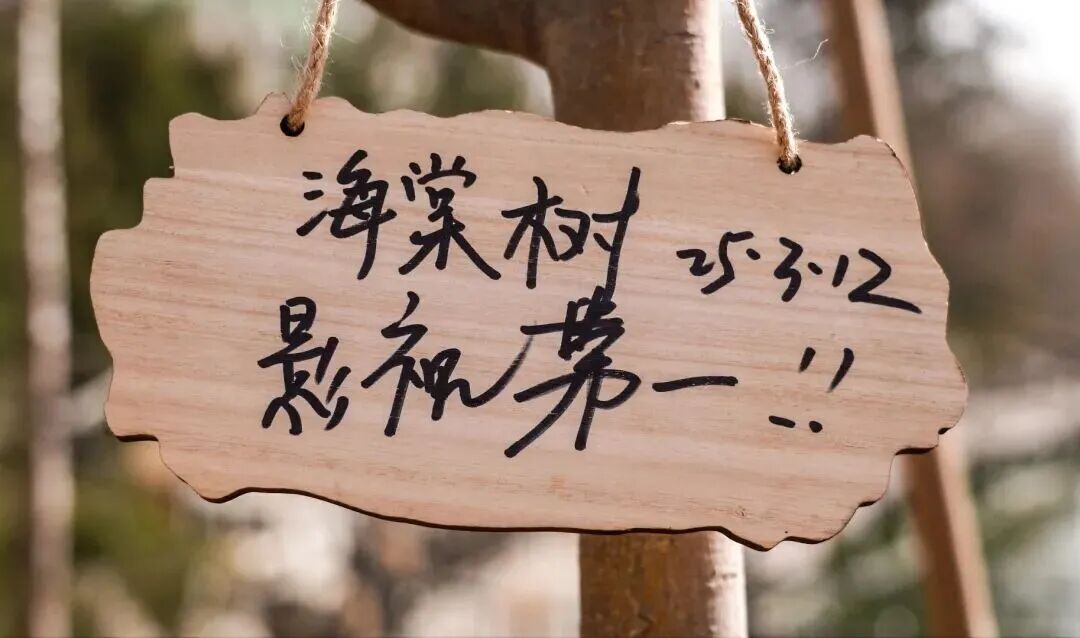 海棠树 25.3.12
影视第一!!